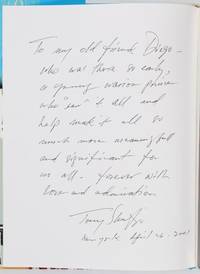 To my old friend Diego –
who was there so early,
a young warrior prince
who "saw" it all and
help made it all so
much more meaningful
and significant for
us all. Forever with
love and admiration
Tony Shafrazi
New York April 26. 2001